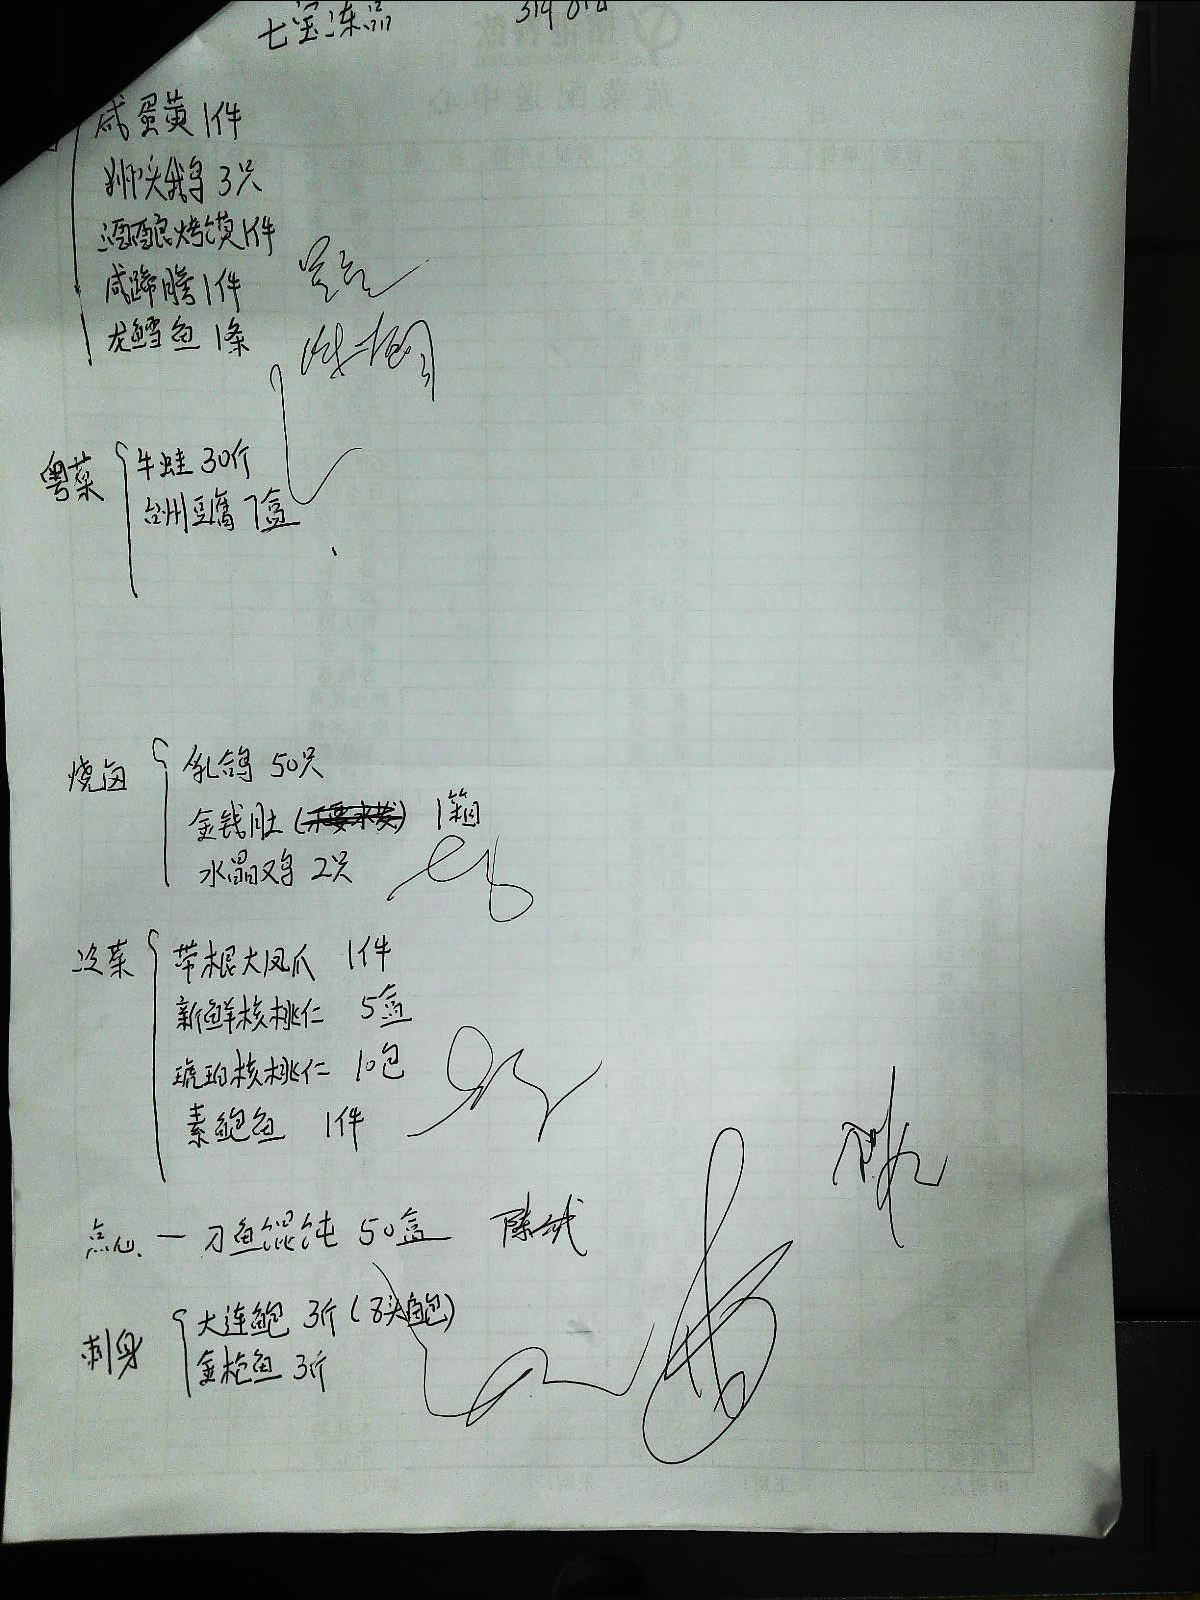 七宝冻品
咸蛋黄 1件
狮头鹅 3只
酒酿烤馍 1件
咸蹄膀 1件
龙鳕鱼 1条
粤菜
牛蛙 30斤
台州豆腐 7盒
烧卤
乳鸽 50只
金钱肚 1箱
水晶鸡 2只
冷菜
带根大凤爪 1件
新鲜核桃仁 5盒
琥珀核桃仁 10包
素鲍鱼 1件
点心 一 刀鱼馄饨 50盒
刺身
大连鲍 3斤(8头鲍)
金枪鱼 3斤